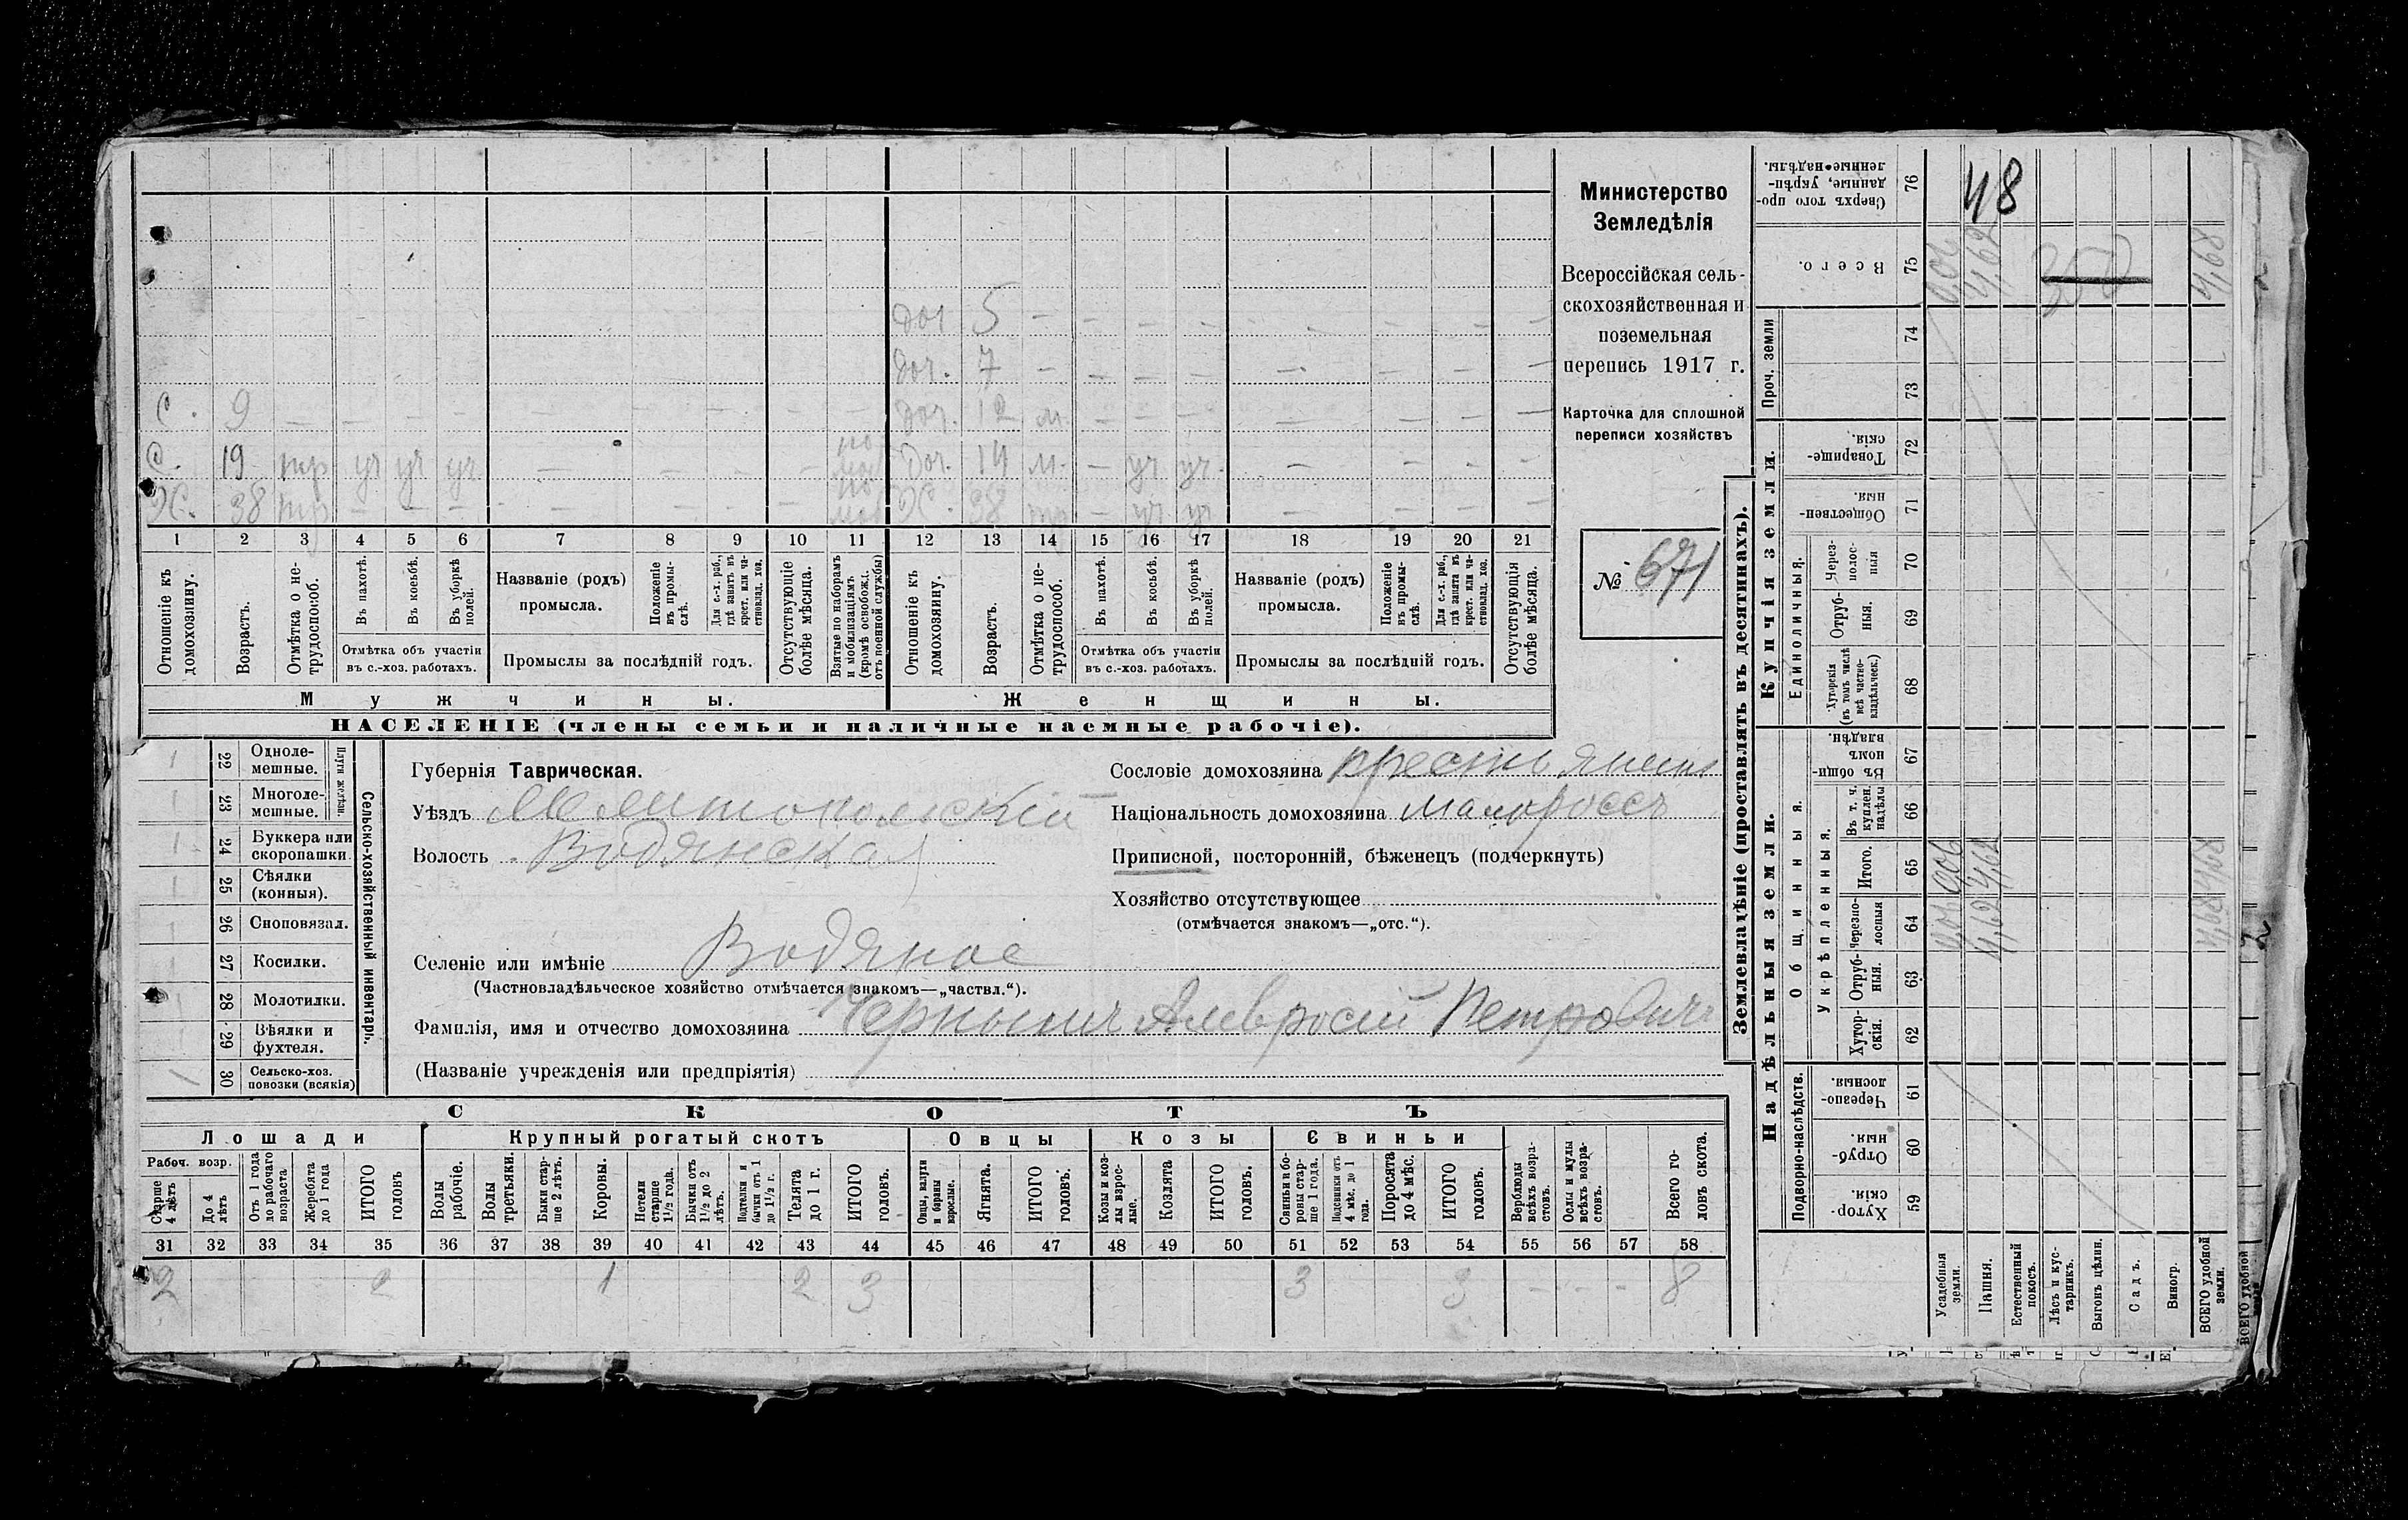 дог 5 — — — — — — — —
дог. 7 — — — — — — — —
С. 9 — — — — — — — — дог. 12 м — — — — — — —
С. 19 тр уч уч уч — — — — по моб Дог. 14 м. — уч уч. — — — —
Х. 38 тр — — — — — — — по моб Ж. 38 тр — уч уч — — — —
1 2 3 4 5 6 7 8 9 10 11 12 13 14 15 16 17 18 19 20 21
Отношеніе къ домохозяину.
Возрастъ.
Отмѣтка о не-трудоспособ.
Въ пахотѣ.
Въ косьбѣ.
Въ уборкѣ полей.
Отмѣтка объ участіи въ с.-хоз. работахъ.
Названіе (родъ) промысла.
Положеніе въ промы-слѣ.
Для с.-х. раб., гдѣ занятъ въ крест. или ча-стновлад. хоз.
Промыслы за послѣдній годъ.
Отсутствующіе болѣе мѣсяца.
Взятые по наборамъ и мобилизаціямъ (кромѣ освобожд. отъ военной службы)
Отношеніе къ домохозяину.
Возрастъ.
Отмѣтка о не-трудоспособ.
Въ пахотѣ.
Въ косьбѣ.
Въ уборкѣ полей.
Отмѣтка объ участіи въ с.-хоз. работахъ.
Названіе (родъ) промысла.
Положеніе въ промы-слѣ.
Для с.-х. раб., гдѣ занята въ крест. или ча-стновлад. хоз.
Промыслы за послѣдній годъ.
Отсутствующія болѣе мѣсяца.
Мужчины. Женщины.
НАСЕЛЕНІЕ (члены семьи и наличные наемные рабочіе).
Министерство
Земледѣлія
Всероссійская сель-
скохозяйственная и
поземельная
перепись 1917 г.
Карточка для сплошной
переписи хозяйствъ
№ 671
1 22 Одноле-мешные.
1 23 Многоле-мешные.
Плуги желѣзн.
1 24 Буккера или скоропашки.
1 25 Сѣялки (конныя).
1 26 Сноповязал.
1 27 Косилки.
1 28 Молотилки.
1 29 Вѣялки и фухтеля.
1 30 Сельско-хоз. повозки (всякія)
Сельско-хозяйственный инвентарь.
Губернія Таврическая.
Уѣздъ Мелитопольскій
Волость Водянская
Селеніе или имѣніе Водяное
(Частновладѣльческое хозяйство отмѣчается знакомъ—„частвл.“).
Фамилія, имя и отчество домохозяина Чернышъ Амвросій Петровичъ
(Названіе учрежденія или предпріятія)
Сословіе домохозяина крестьянинъ
Національность домохозяина малороссъ
Приписной, посторонній, бѣженецъ (подчеркнуть)
Хозяйство отсутствующее
(отмѣчается знакомъ—„отс.“).
СКОТЪ
Лошади Крупный рогатый скотъ Овцы Козы Свиньи
Рабоч. возр.
Старше 4 лѣтъ
До 4 лѣтъ
Отъ 1 года до рабочаго возраста
Жеребята до 1 года
ИТОГО головъ
Волы рабочіе.
Волы третьяки.
Быки стар-ше 2 лѣтъ.
Коровы.
Нетели старше 1½ года.
Бычки отъ 1½ до 2 лѣтъ.
Подтелки и бычки отъ 1 до 1½ г.
Телята до 1 г.
ИТОГО головъ.
Овцы, валухи и бараны взрослые.
Ягнята.
ИТОГО головъ.
Козы и коз-лы взрос-лые.
Козлята
ИТОГО головъ.
Свиньи и бо-ровы стар-ше 1 года.
Подсвинки отъ 4 мѣс. до 1 года.
Поросята до 4 мѣс.
ИТОГО головъ.
Верблюды всѣхъ возра-стовъ.
Ослы и мулы всѣхъ возра-стовъ.
Всего го-ловъ скота.
31 32 33 34 35 36 37 38 39 40 41 42 43 44 45 46 47 48 49 50 51 52 53 54 55 56 57 58
2 2 1 2 3 3 3 - - - 8
Землевладѣніе (проставлять въ десятинахъ).
Надѣльныя земли. Купчія земли. Проч. земли
Подворно-наслѣдств.
Общинныя.
Укрѣпленныя.
Единоличныя.
Хутор-скія. 59
Отруб-ныя. 60
Черезпо-лосныя 61
Хутор-скія. 62
Отруб-ныя. 63
Черезпо-лосныя 64
Итого. 65
Въ т. ч. куплен. надѣлы 66
Въ общи-номъ владѣн. 67
Хуторскія (въ томъ числѣ всѣ частно-владѣльческ.) 68
Отруб-ныя. 69
Через-полос-ныя 70
Обществен-ныя. 71
Товарище-скія. 72
73
74
Всего. 75
Сверхъ того про-данные, укрѣп-ленные надѣлы. 76
48
Усадебныя земли.
Пашня. 4,62 4,62 4,62
Естественный покосъ.
Лѣсъ и кус-тарникъ.
Выгонъ цѣлин.
Садъ.
Виногр.
ВСЕГО удобной земли. 4,68 4,68 4,68
ВСЕГО удобной
2